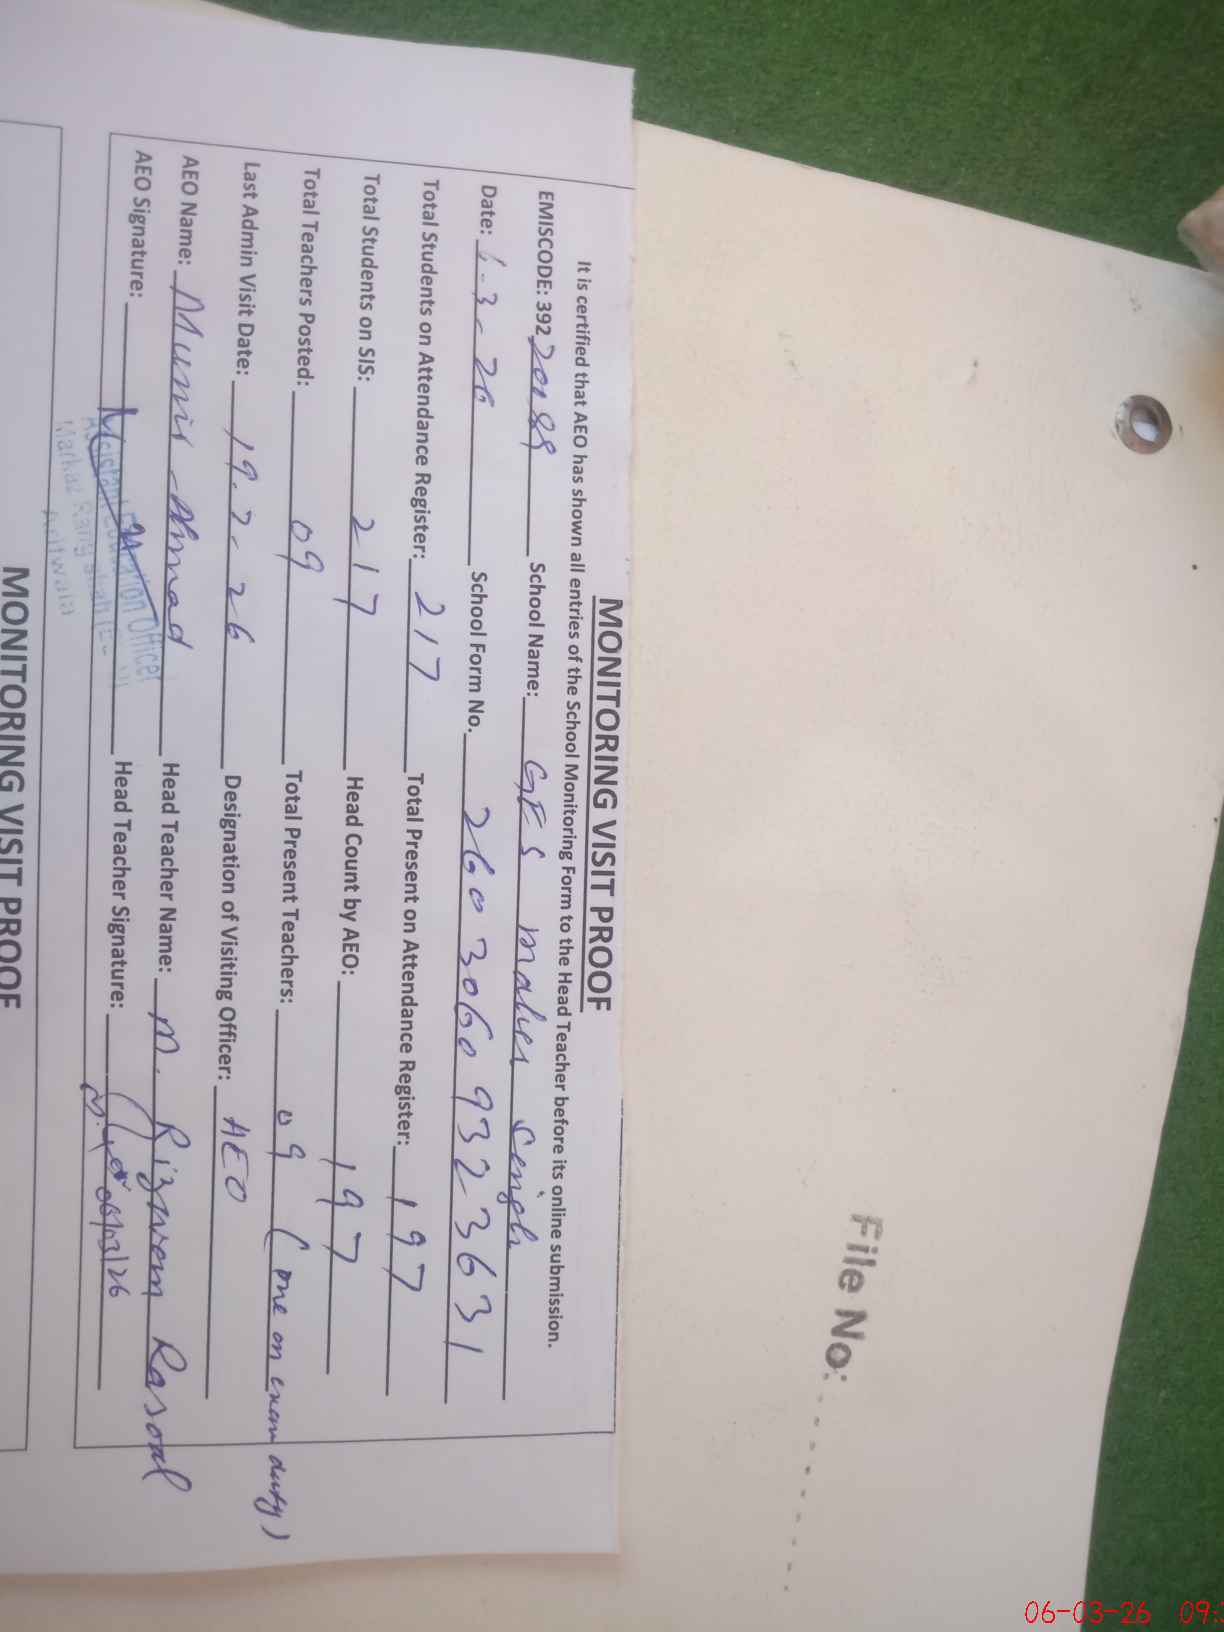 MONITORING VISIT PROOF
It is certified that AEO has shown all entries of the School Monitoring Form to the Head Teacher before its online submission.
EMISCODE: 392 20088 School Name: GES Maher Singh
Date: 6-3-26 School Form No. 26030609323631
Total Students on Attendance Register: 217 Total Present on Attendance Register: 197
Total Students on SIS: 217 Head Count by AEO: 197
Total Teachers Posted: 09 Total Present Teachers: 09 (one on exam duty)
Last Admin Visit Date: 19-2-26 Designation of Visiting Officer: AEO
AEO Name: Munir Ahmad Head Teacher Name: M. Rizwan Rasool
AEO Signature: Head Teacher Signature: 06/03/26
Assistant Education Officer
Markaz Rang Shah
Arifwala
MONITORING VISIT PROOF
File No:
06-03-26 09: